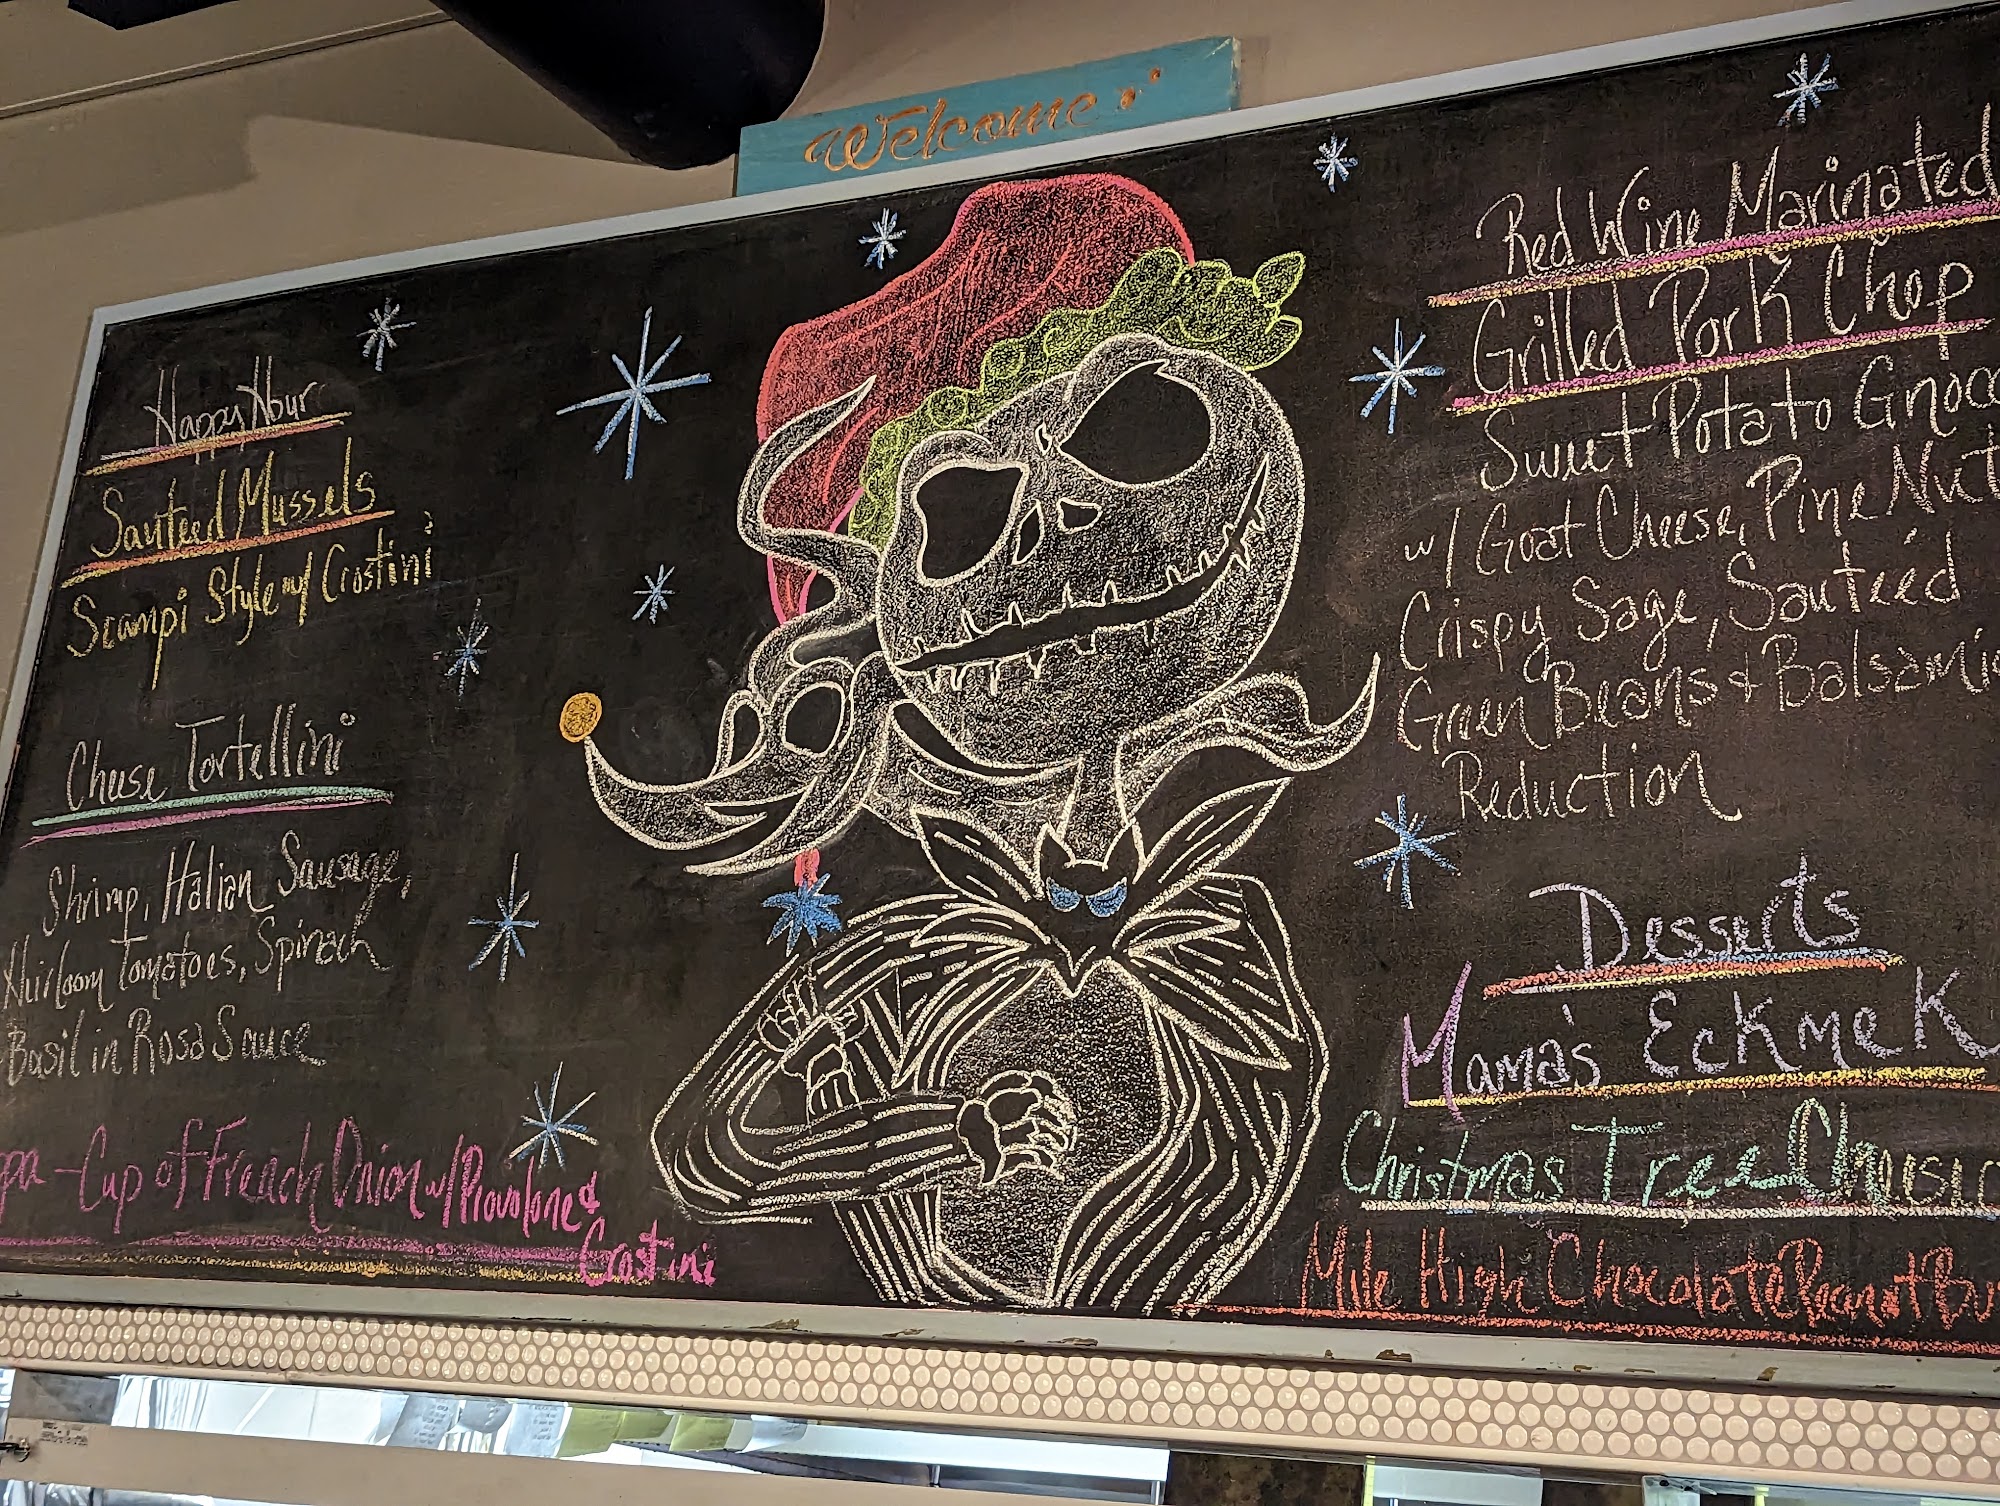 Welcome!
Happy Hour
Sauteed Mussels
Scampi Style w/ Crostini
Cheese Tortellini
Shrimp, Italian Sausage,
Heirloom Tomatoes, Spinach
Basil in Rosa Sauce
Cup of French Onion w/ Provolone &
Crostini
Red Wine Marinated
Grilled Pork Chop
Sweet Potato Gnocc
w/ Goat Cheese, Pine Nut
Crispy Sage, Sauteed
Green Beans & Balsamic
Reduction
Desserts
Mama's Eckmek
Christmas Tree Cheesec
Mile High Chocolate Peanut Bu